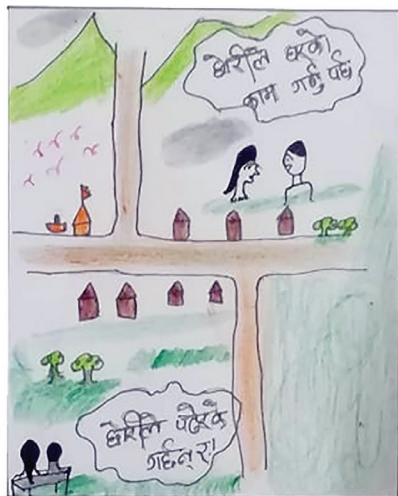 छोरीले घरको
काम गर्नु पर्छ
छोरीले पढेरके
गर्छन् र!